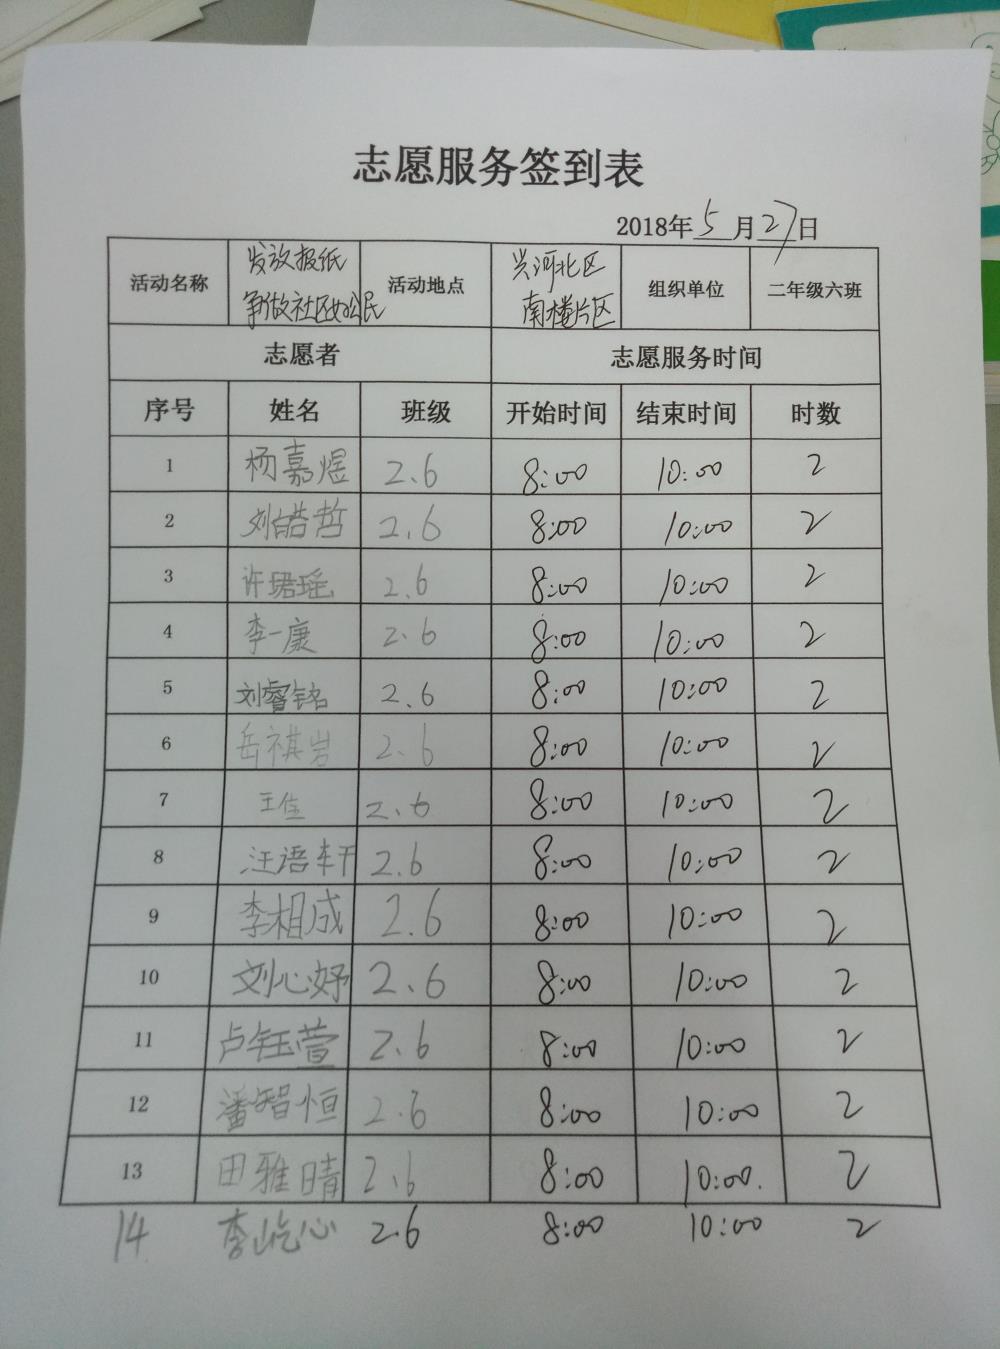 志愿服务签到表
2018年5月27日
活动名称 发放报纸 争做社区好公民 活动地点 兴河北区 南楼片区 组织单位 二年级六班
志愿者 志愿服务时间
序号 姓名 班级 开始时间 结束时间 时数
1 杨嘉煜 2.6 8:00 10:00 2
2 刘皓哲 2.6 8:00 10:00 2
3 许珺瑶 2.6 8:00 10:00 2
4 李一康 2.6 8:00 10:00 2
5 刘睿铭 2.6 8:00 10:00 2
6 岳祺岩 2.6 8:00 10:00 2
7 王佳 2.6 8:00 10:00 2
8 汪语轩 2.6 8:00 10:00 2
9 李相成 2.6 8:00 10:00 2
10 刘心妤 2.6 8:00 10:00 2
11 卢钰萱 2.6 8:00 10:00 2
12 潘智恒 2.6 8:00 10:00 2
13 田雅晴 2.6 8:00 10:00. 2
14 李屹心 2.6 8:00 10:00 2